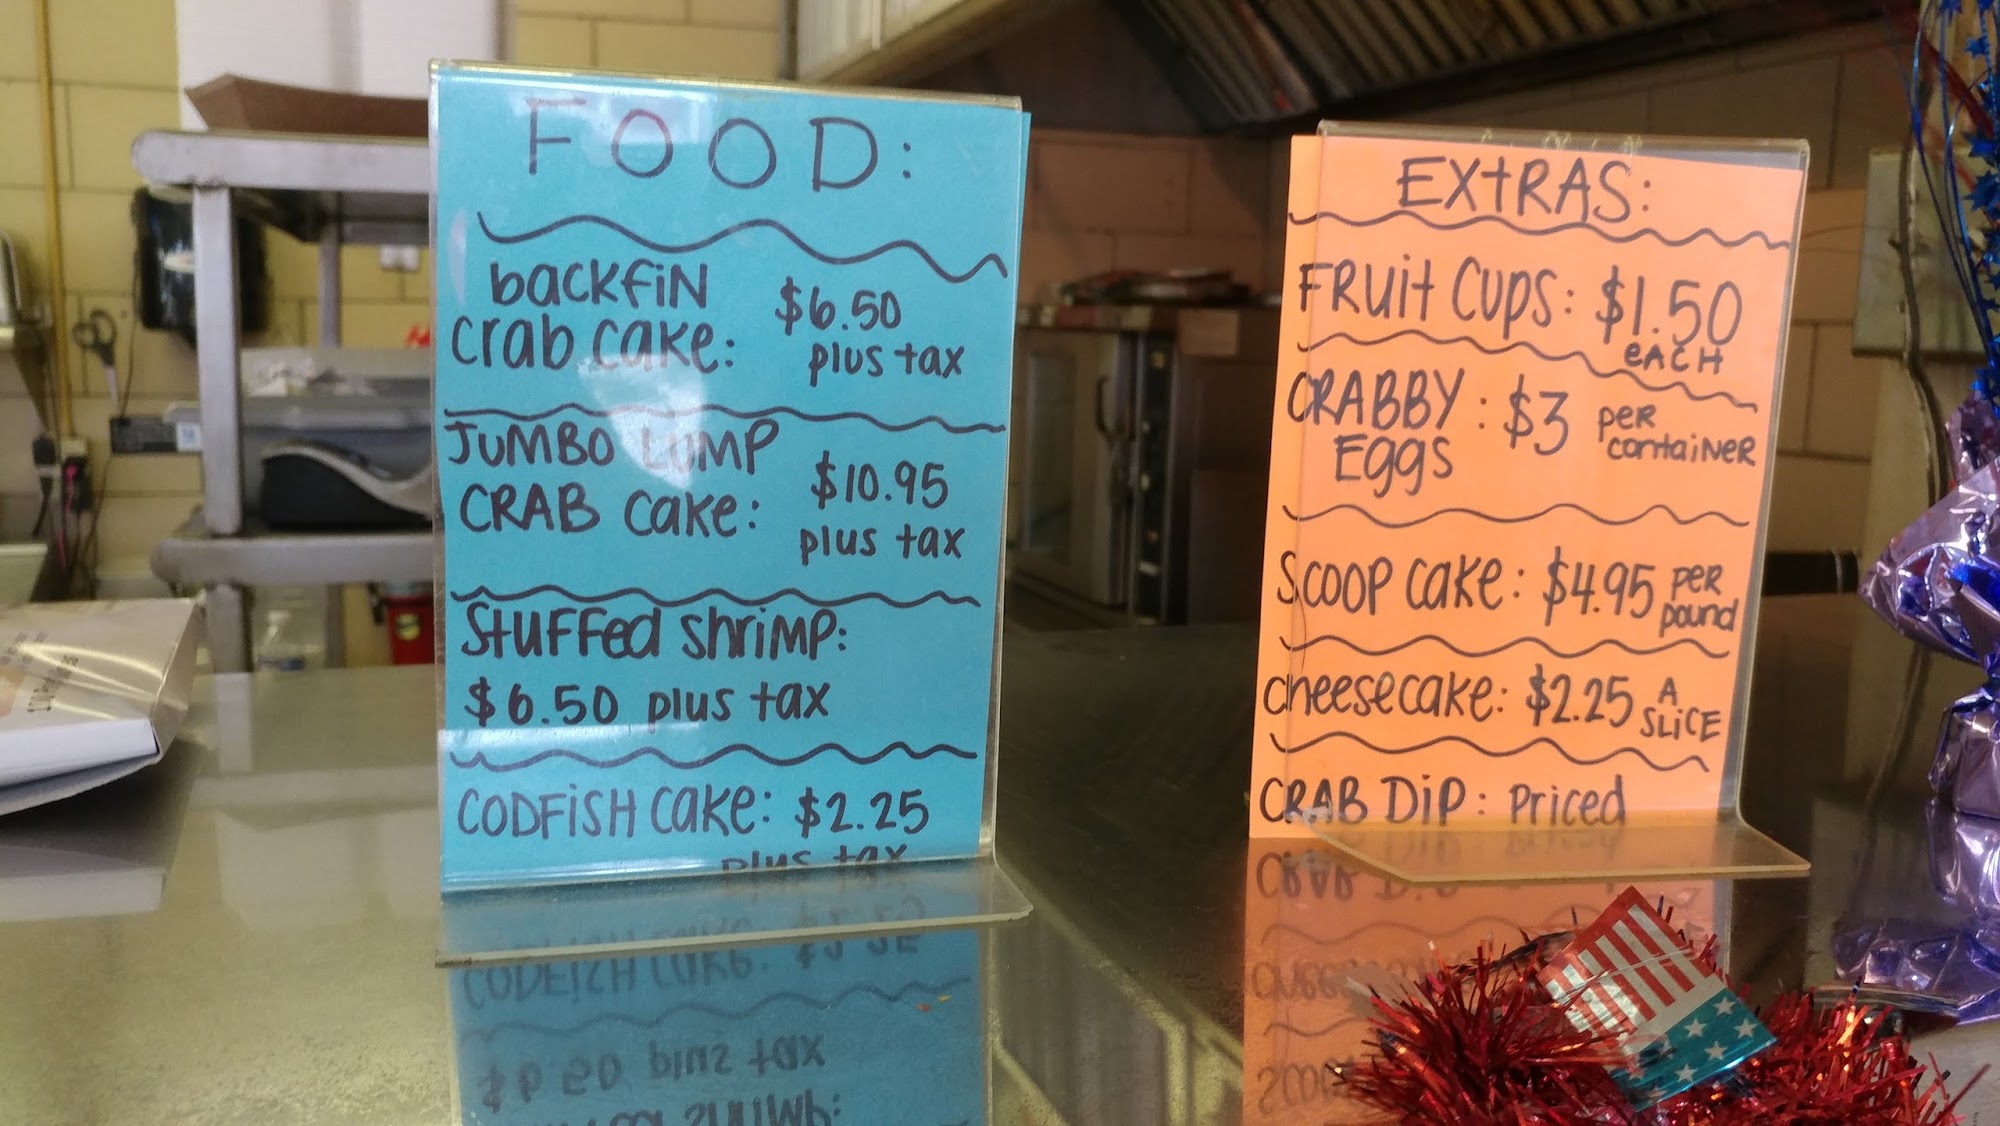 FOOD:
backfin
crab cake:
$6.50
plus tax
JUMBO LUMP
CRAB cake:
$10.95
plus tax
Stuffed shrimp:
$6.50 plus tax
CODFISH cake: $2.25
plus tax
EXtRAS:
FRuit Cups: $1.50
eACH
CRABBY
Eggs
: $3
per
container
Scoop cake: $4.95
per
pound
cheesecake: $2.25
A
SLICE
CRAB Dip: Priced